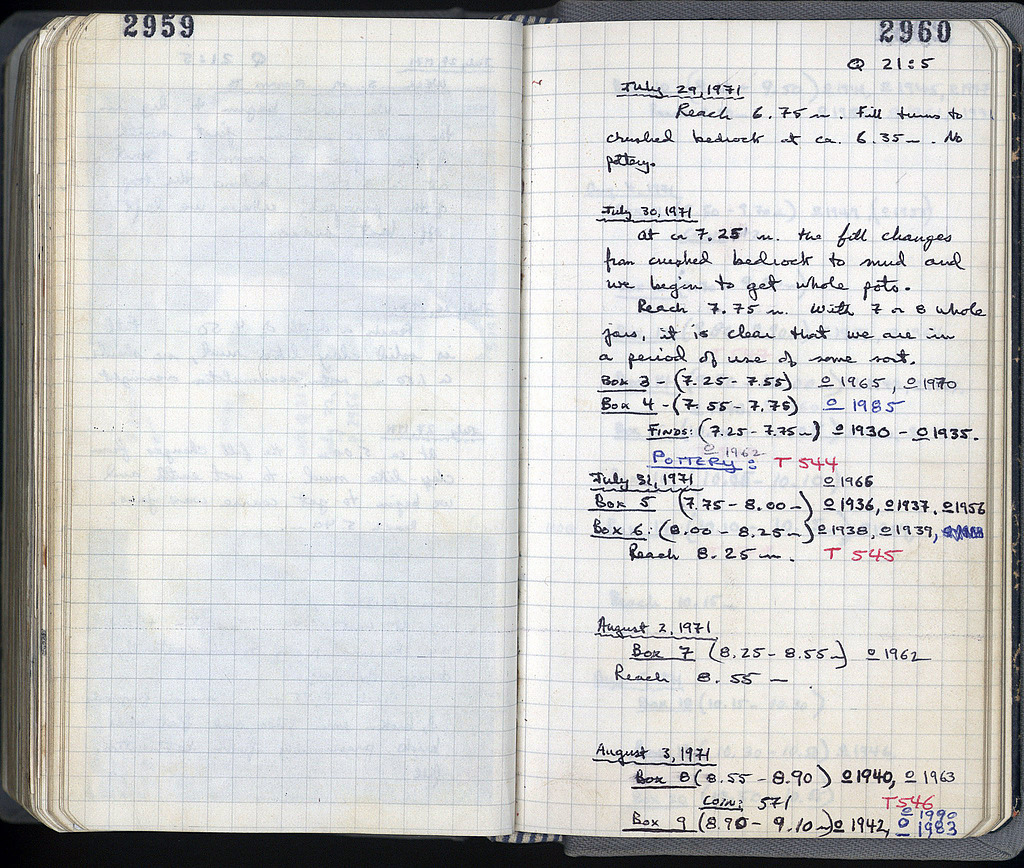 2959
2960
Q 21:5
July 29, 1971
Reach 6.75 m. Fill turns to
crushed bedrock at ca. 6.35 m. No
pottery.
July 30, 1971
At ca 7.25 m. the fill changes
from crushed bedrock to mud and
we begin to get whole pots.
Reach 7.75 m. With 7 or 8 whole
jars, it is clear that we are in
a period of use of some sort.
Box 3 - (7.25 - 7.55) o 1965, o 1970
Box 4 - (7.55 - 7.75) o 1985
FINDS: (7.25 - 7.75 m) o 1930 - o 1935.
o 1962
POTTERY: T 544
July 31, 1971 o 1966
Box 5 (7.75 - 8.00 m) o 1936, o 1937, o 1956
Box 6: (8.00 - 8.25 m) o 1938, o 1939,
Reach 8.25 m. T 545
August 2, 1971
Box 7 (8.25 - 8.55 m) o 1962
Reach 8.55 m.
August 3, 1971
Box 8 (8.55 - 8.90) o 1940, o 1963
COIN: 571 T 546
o 1990
Box 9 (8.90 - 9.10 m) o 1942, o 1983